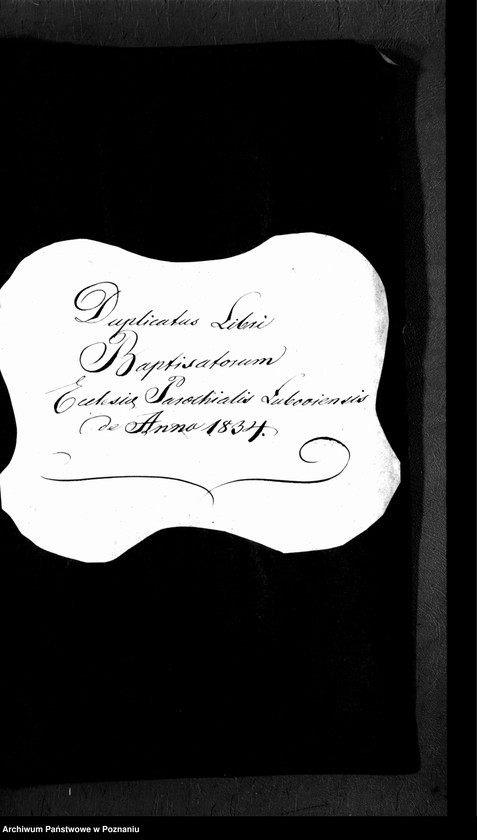 Duplicatus Libri
Baptisatorum
Ecclesiæ Parochialis Lubooiensis
de Anno 1834.
Archiwum Państwowe w Poznaniu